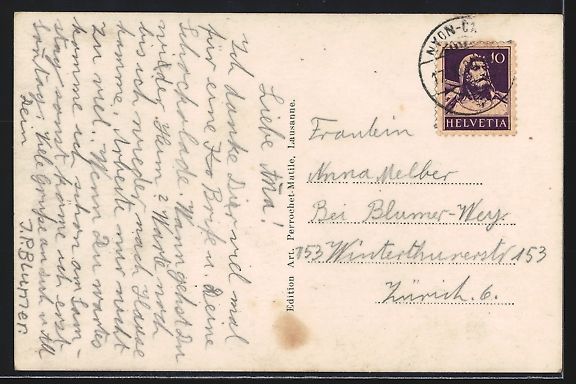 Liebe Aña!
Ich danke Dir viel mal
für eine Deine
Schocholade. Wann gehst Du
wieder heim?
bis ich wieder nach Hause
komme. Arbeite nur nicht
zu viel. Wenn Du
komme ich schon am Sam-
stag sonst kome ich erst
Sontag. viele Grüsse
Dein J.P. Blumer.
Edition Art. Perrochet-Matile, Lausanne.
NYON
10
HELVETIA
Fräulein
Anna Melber
Bei Blumer-Wey.
153 Winterthurerstr 153
Zürich. 6.